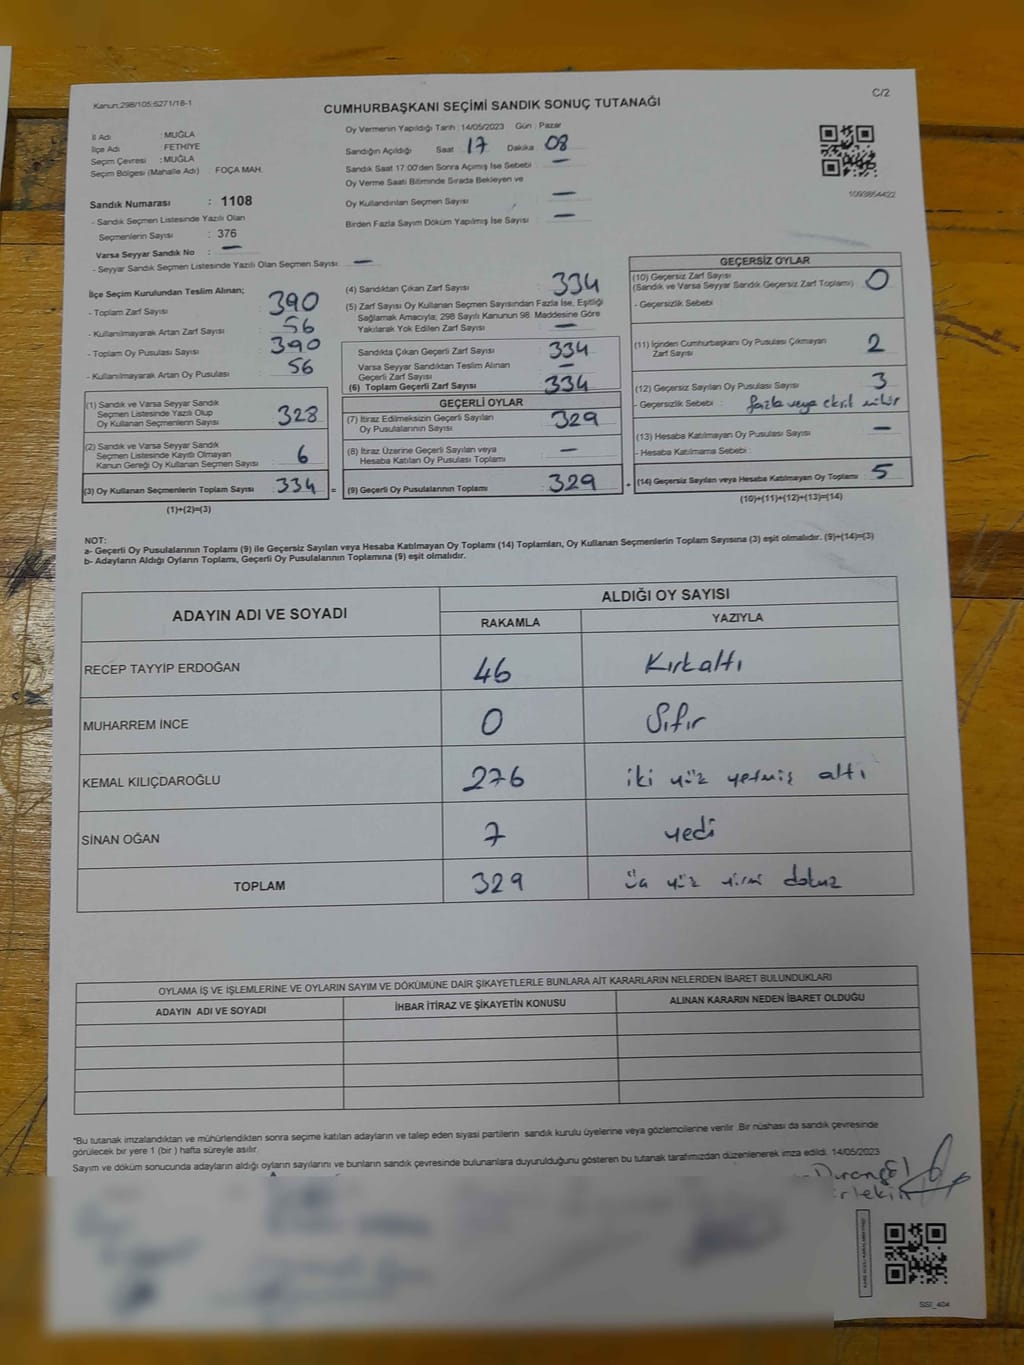 Kanun:298/105;6271/18-1
CUMHURBAŞKANI SEÇİMİ SANDIK SONUÇ TUTANAĞI
C/2
İl Adı : MUĞLA
İlçe Adı FETHİYE
Seçim Çevresi : MUĞLA
Seçim Bölgesi (Mahalle Adı) : FOÇA MAH.
Sandık Numarası : 1108
- Sandık Seçmen Listesinde Yazılı Olan
Seçmenlerin Sayısı : 376
Varsa Seyyar Sandık No : —
- Seyyar Sandık Seçmen Listesinde Yazılı Olan Seçmen Sayısı: —
Oy Vermenin Yapıldığı Tarih : 14/05/2023 Gün : Pazar
Sandığın Açıldığı Saat 17 Dakika 08
Sandık Saat 17:00'den Sonra Açılmış İse Sebebi : —
Oy Verme Saati Bitiminde Sırada Bekleyen ve
Oy Kullandırılan Seçmen Sayısı : —
Birden Fazla Sayım Döküm Yapılmış İse Sayısı : —
1093854422
İlçe Seçim Kurulundan Teslim Alınan;
- Toplam Zarf Sayısı : 390
- Kullanılmayarak Artan Zarf Sayısı : 56
- Toplam Oy Pusulası Sayısı : 390
- Kullanılmayarak Artan Oy Pusulası : 56
(1) Sandık ve Varsa Seyyar Sandık
Seçmen Listesinde Yazılı Olup
Oy Kullanan Seçmenlerin Sayısı : 328
(2) Sandık ve Varsa Seyyar Sandık
Seçmen Listesinde Kayıtlı Olmayan
Kanun Gereği Oy Kullanan Seçmen Sayısı : 6
(3) Oy Kullanan Seçmenlerin Toplam Sayısı : 334 =
(1)+(2)=(3)
(4) Sandıktan Çıkan Zarf Sayısı : 334
(5) Zarf Sayısı Oy Kullanan Seçmen Sayısından Fazla İse, Eşitliği
Sağlamak Amacıyla; 298 Sayılı Kanunun 98. Maddesine Göre
Yakılarak Yok Edilen Zarf Sayısı : —
Sandıkta Çıkan Geçerli Zarf Sayısı : 334
Varsa Seyyar Sandıktan Teslim Alınan
Geçerli Zarf Sayısı : —
(6) Toplam Geçerli Zarf Sayısı : 334
GEÇERLİ OYLAR
(7) İtiraz Edilmeksizin Geçerli Sayılan
Oy Pusulalarının Sayısı : 329
(8) İtiraz Üzerine Geçerli Sayılan veya
Hesaba Katılan Oy Pusulası Toplamı : —
(9) Geçerli Oy Pusulalarının Toplamı : 329 +
GEÇERSİZ OYLAR
(10) Geçersiz Zarf Sayısı
(Sandık ve Varsa Seyyar Sandık Geçersiz Zarf Toplamı) : 0
- Geçersizlik Sebebi :
(11) İçinden Cumhurbaşkanı Oy Pusulası Çıkmayan
Zarf Sayısı : 2
(12) Geçersiz Sayılan Oy Pusulası Sayısı : 3
- Geçersizlik Sebebi : fazla veya eksik mühür
(13) Hesaba Katılmayan Oy Pusulası Sayısı : —
- Hesaba Katılmama Sebebi :
(14) Geçersiz Sayılan veya Hesaba Katılmayan Oy Toplamı : 5
(10)+(11)+(12)+(13)=(14)
NOT:
a- Geçerli Oy Pusulalarının Toplamı (9) ile Geçersiz Sayılan veya Hesaba Katılmayan Oy Toplamı (14) Toplamları, Oy Kullanan Seçmenlerin Toplam Sayısına (3) eşit olmalıdır. (9)+(14)=(3)
b- Adayların Aldığı Oyların Toplamı, Geçerli Oy Pusulalarının Toplamına (9) eşit olmalıdır.
ADAYIN ADI VE SOYADI
ALDIĞI OY SAYISI
RAKAMLA YAZIYLA
RECEP TAYYİP ERDOĞAN 46 Kırkaltı
MUHARREM İNCE 0 Sıfır
KEMAL KILIÇDAROĞLU 276 iki yüz yetmiş altı
SİNAN OĞAN 7 yedi
TOPLAM 329 üç yüz yirmi dokuz
OYLAMA İŞ VE İŞLEMLERİNE VE OYLARIN SAYIM VE DÖKÜMÜNE DAİR ŞİKAYETLERLE BUNLARA AİT KARARLARIN NELERDEN İBARET BULUNDUKLARI
ADAYIN ADI VE SOYADI İHBAR İTİRAZ VE ŞİKAYETİN KONUSU ALINAN KARARIN NEDEN İBARET OLDUĞU
*Bu tutanak imzalandıktan ve mühürlendikten sonra seçime katılan adayların ve talep eden siyasi partilerin sandık kurulu üyelerine veya gözlemcilerine verilir. Bir nüshası da sandık çevresinde
görülecek bir yere 1 (bir ) hafta süreyle asılır.
Sayım ve döküm sonucunda adayların aldığı oyların sayılarını ve bunların sandık çevresinde bulunanlara duyurulduğunu gösteren bu tutanak tarafımızdan düzenlenerek imza edildi. 14/05/2023
SSI_404